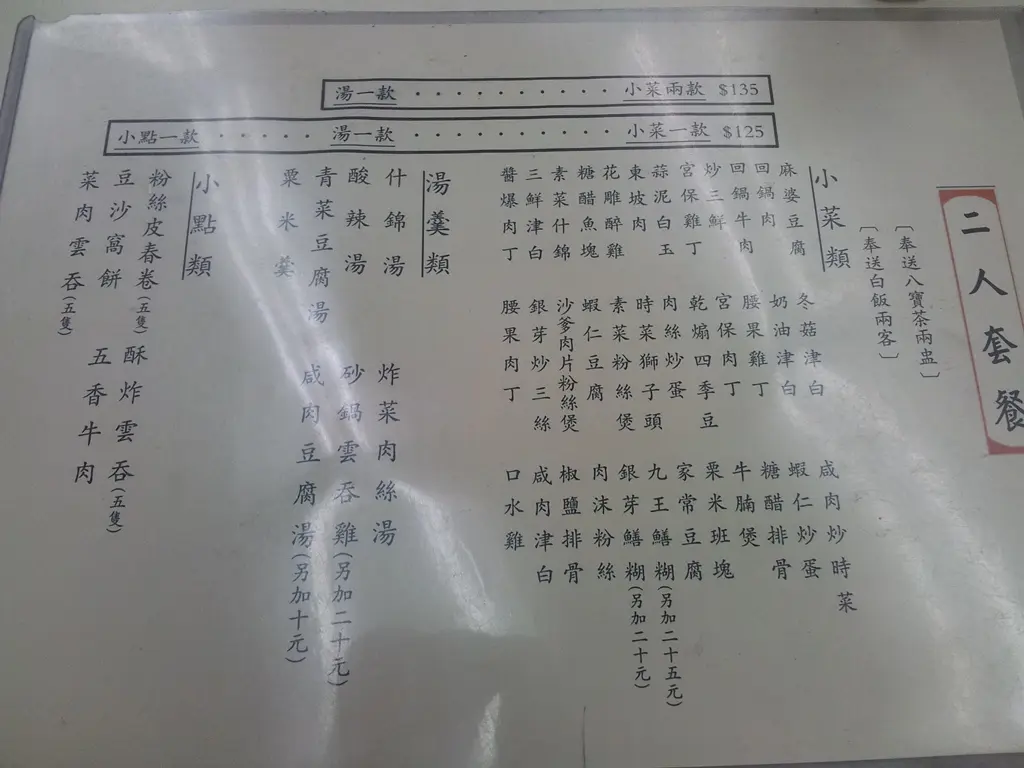 二人套餐
〔奉送八寶茶兩盅〕
〔奉送白飯兩客〕
湯一款 · · · · · · · · · · · · 小菜兩款 $135
小點一款 · · · · · 湯一款 · · · · · · · · · · · · 小菜一款 $125
小菜類
麻婆豆腐
回鍋肉
回鍋牛肉
炒三鮮
宮保雞丁
蒜泥白玉
東坡肉
花雕醉雞
糖醋魚塊
素菜什錦
三鮮津白
醬爆肉丁
冬菇津白
奶油津白
腰果雞丁
宮保肉丁
乾煸四季豆
肉絲炒蛋
時菜獅子頭
素菜粉絲煲
蝦仁豆腐
沙爹肉片粉絲煲
銀芽炒三絲
腰果肉丁
咸肉炒時菜
蝦仁炒蛋
糖醋排骨
牛腩煲
粟米班塊
家常豆腐
九王鱔糊(另加二十五元)
銀芽鱔糊(另加二十元)
肉沫粉絲
椒鹽排骨
咸肉津白
口水雞
湯羹類
什錦湯
酸辣湯
青菜豆腐湯
粟米羹
炸菜肉絲湯
砂鍋雲吞雞(另加二十元)
咸肉豆腐湯(另加十元)
小點類
粉絲皮春卷(五隻)
豆沙窩餅
菜肉雲吞(五隻)
酥炸雲吞(五隻)
五香牛肉